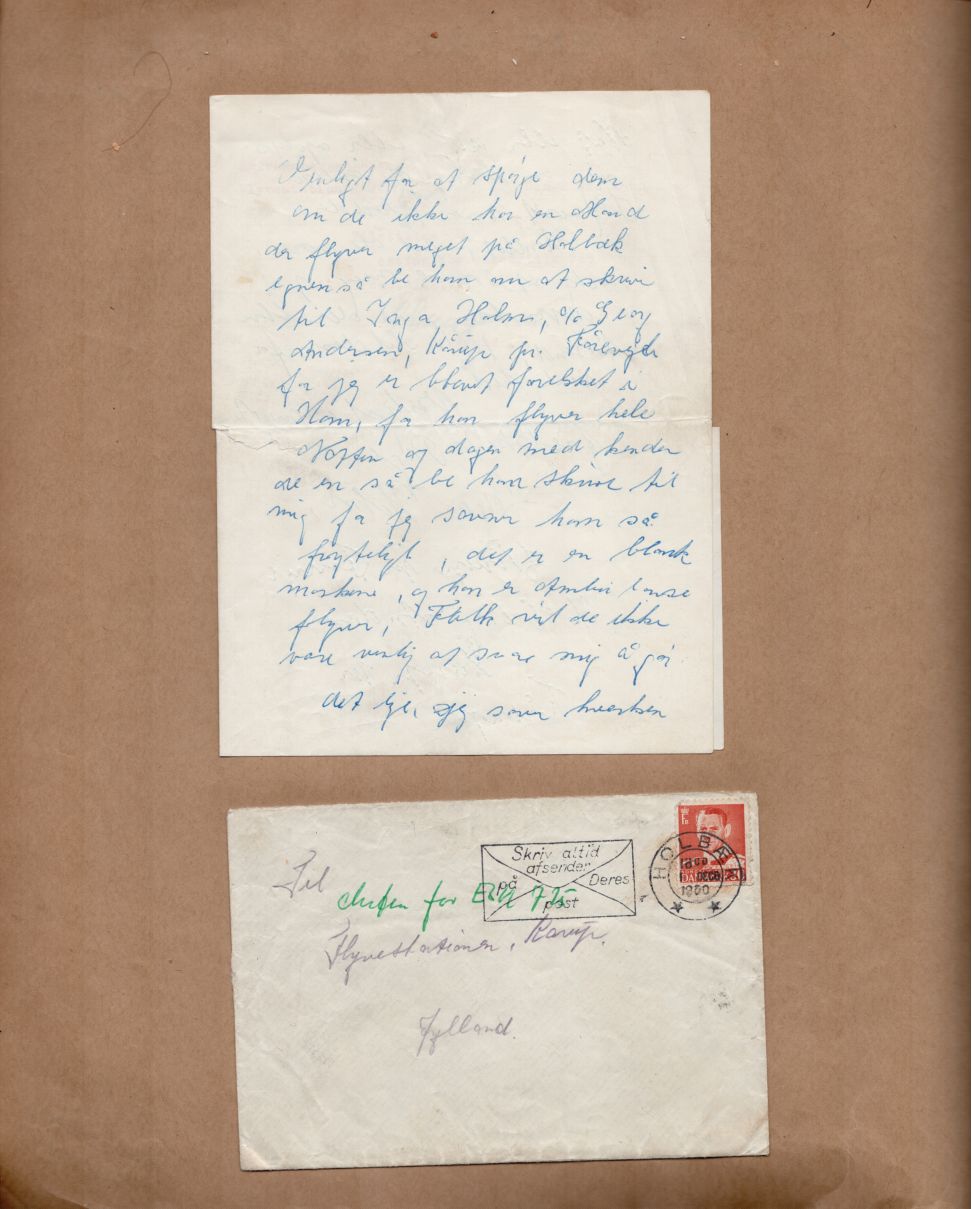 Venligt for at spørge dem
om de ikke har en Mand
der flyver meget på Holbæk
egnen så be ham om at skrive
til Inga Holm, c/o Georg
Andersen, Kårup pr. Fårevejle
for jeg er blevet forelsket i
Ham, for han flyver hele
Natten og dagen med kender
de en så be ham skrive til
mig for jeg savner ham så
frygteligt, det er en blank
maskine, og han er Ambulance
flyver, Falk vil de ikke
være venlig at svare mig å gør
det lige, jeg sover hverken
Til
chefen for Esk 725
Flyvestationen, Karup.
Jylland.
Skriv altid
afsender
på Deres
post
HOLBÆK